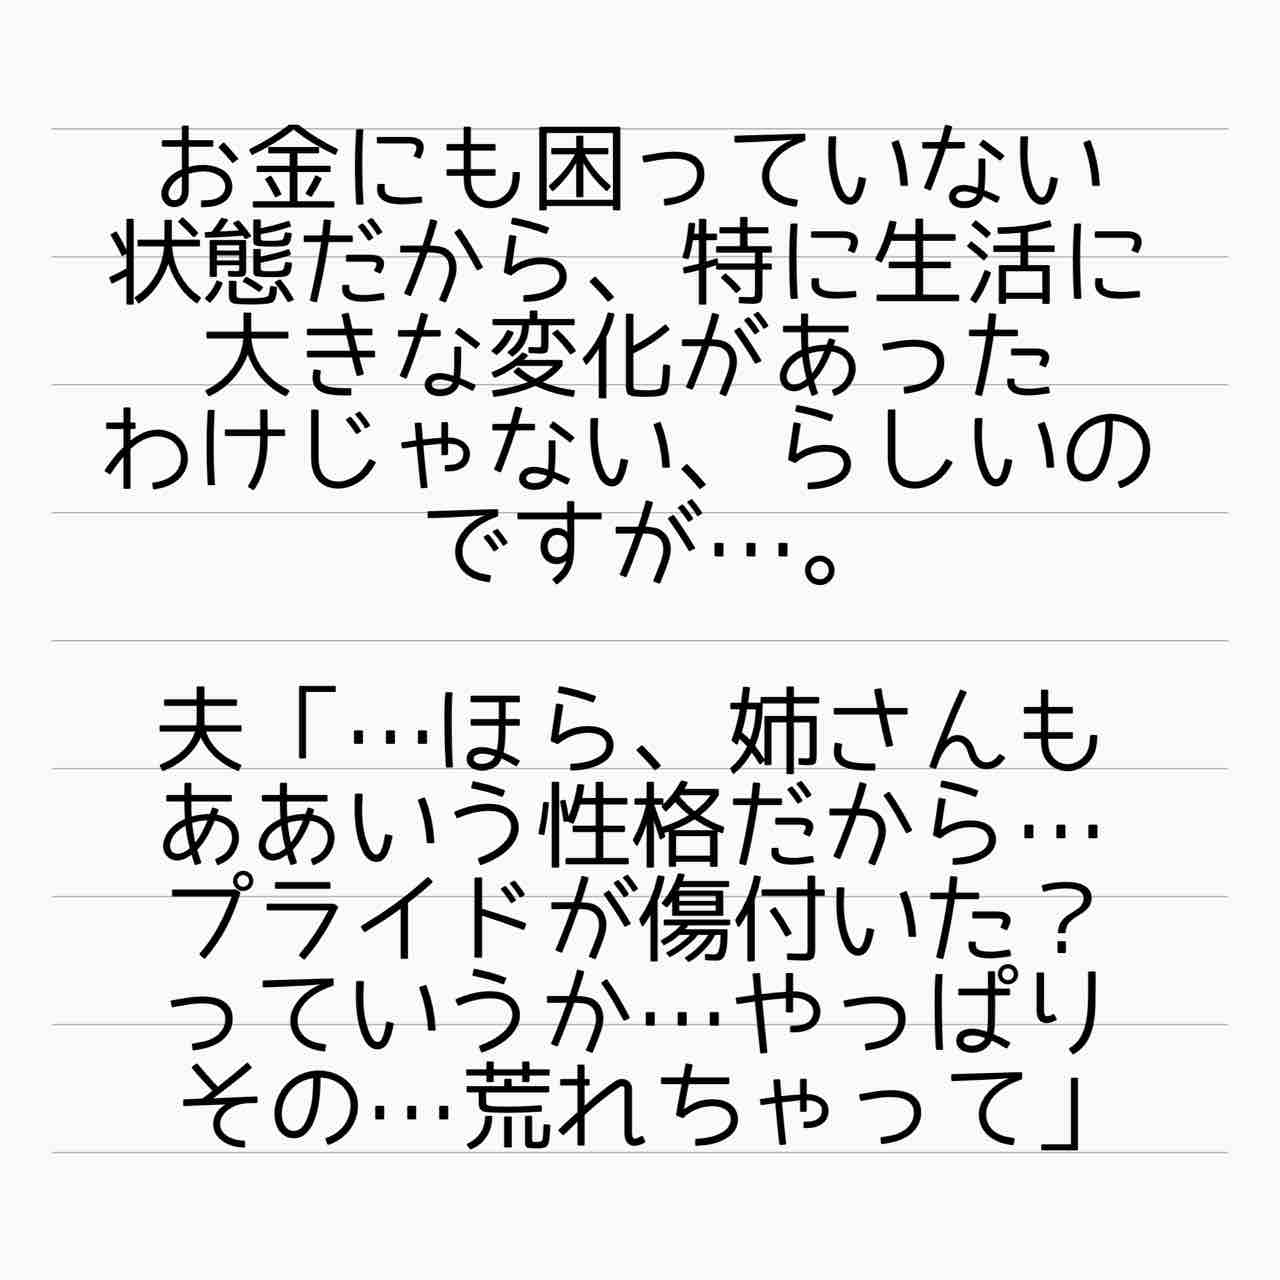 お金にも困っていない
状態だから、特に生活に
大きな変化があった
わけじゃない、らしいの
ですが…。
夫「…ほら、姉さんも
ああいう性格だから…
プライドが傷付いた？
っていうか…やっぱり
その…荒れちゃって」